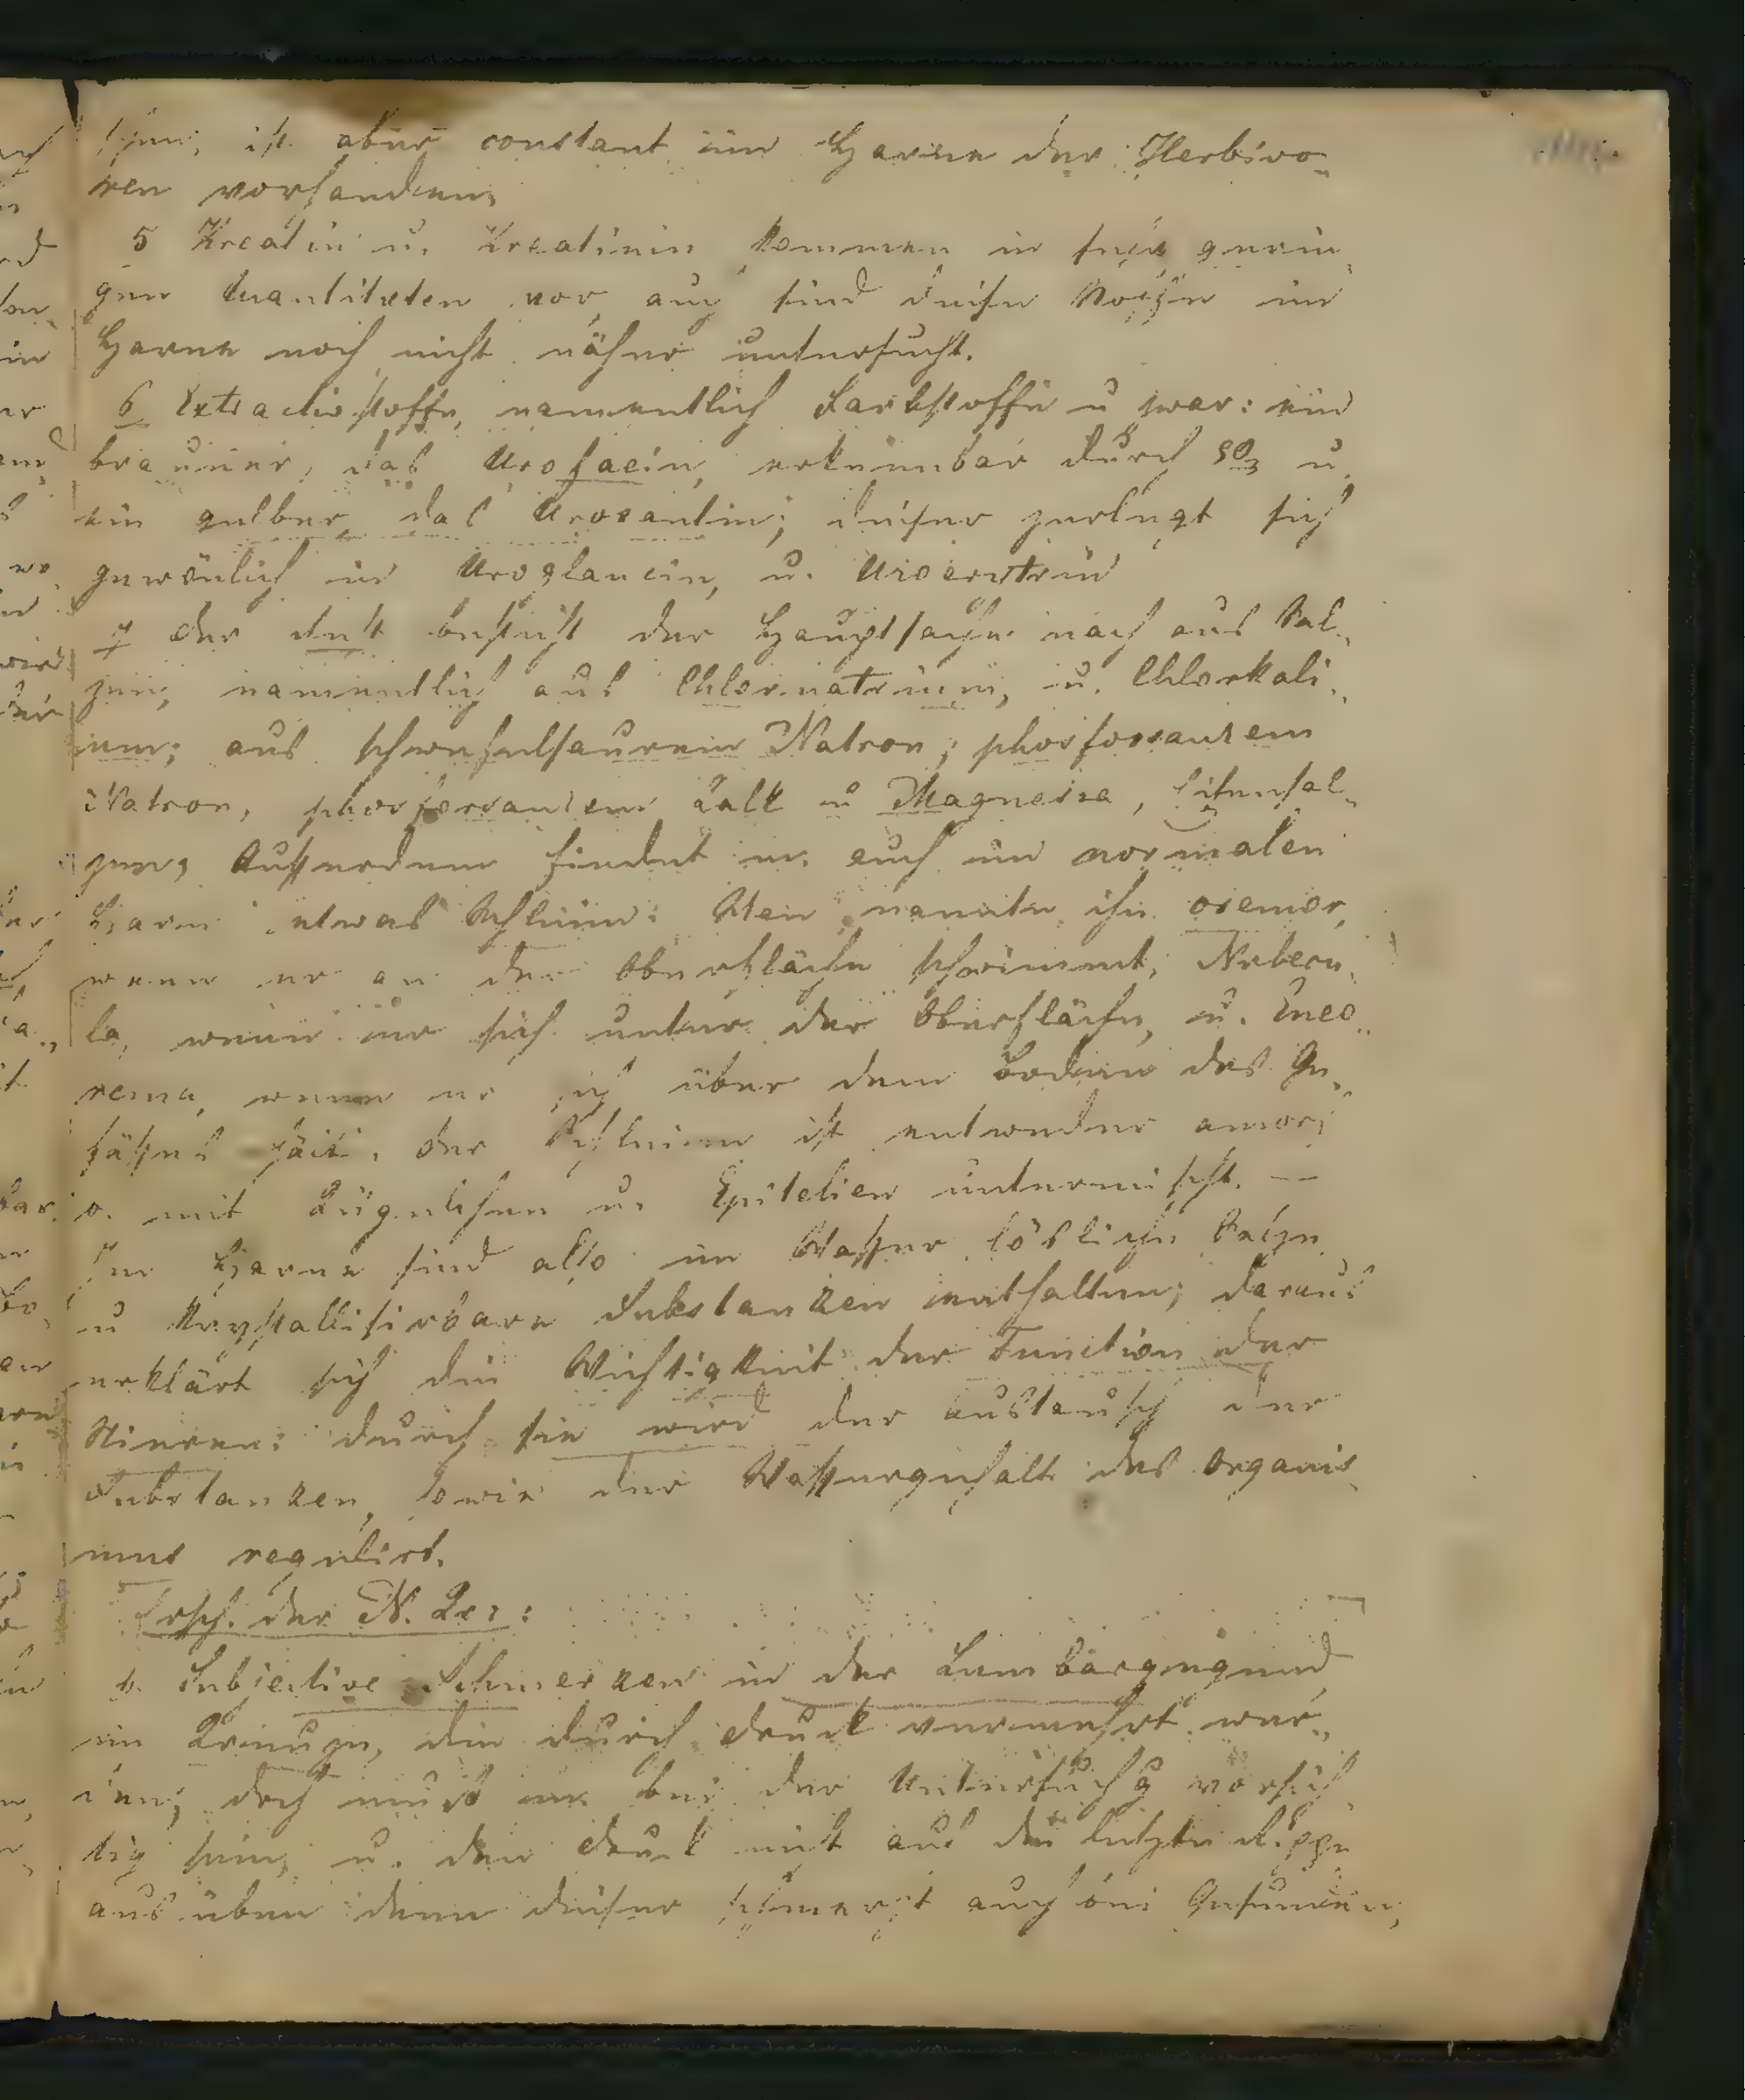 ist aber constant im Harne der Herbivo-
ren vorhanden.
5 Kreatin u. Kreatinin kommen in sehr gerin-
gen Quantitæten vor, auch sind diese Stoffe im
Harne noch nicht näher untersucht.
6 Extractivstoffe, namentlich Farbstoffe u zwar: ein
brauner, das Urofaein, erkennbar durch SO3 u.
ein gelber das Uroxantin; dieser zerlegt sich
gewönlich in Uroglaucin, u. Uroerytrin
7 Der Rest besteht der Hauptsache nach aus Sal-
zen, namentlich aus Chlornatrium, u. Chlorkali-
um; aus schwefelsaurem Natron; phosforsaurem
Natron, phosforsaurem Kalk u Magnesia,
zen, Außerdem findet m. auch im normalen
Harn etwas Schleim: Man nannte ihn cremor,
wenn er an der Oberfläche schwimmt; Nubecu-
la, wenn er sich unter der Oberfläche, u. Eneo-
rema, wenn er sich über dem Boden des Ge-
fäßes hält. Der Schleim ist entweder amorf
o. mit Kügelchen u. Epitelien untermischt. —
Im Harne sind also im Wasser lösliche Salze
u Krystallisirbare Substanzen enthalten; daraus
erklärt sich die Wichtigkeit der Function der
Nieren: durch sie wird der Austausch der
Substanzen, sowie der Wassergehalt des Organis-
mus regulirt.
Ersch. der N. Kr:
Subjective Schmerzen in der Lumbargegend
im Kreuze, die durch Druck vermehrt wer-
den; doch muß m. bei der Untersuchg vorsich-
tig sein, u. den Druck nicht auf die letzten Rippen
ausüben denn dieser schmerzt auch bei Gesunden,